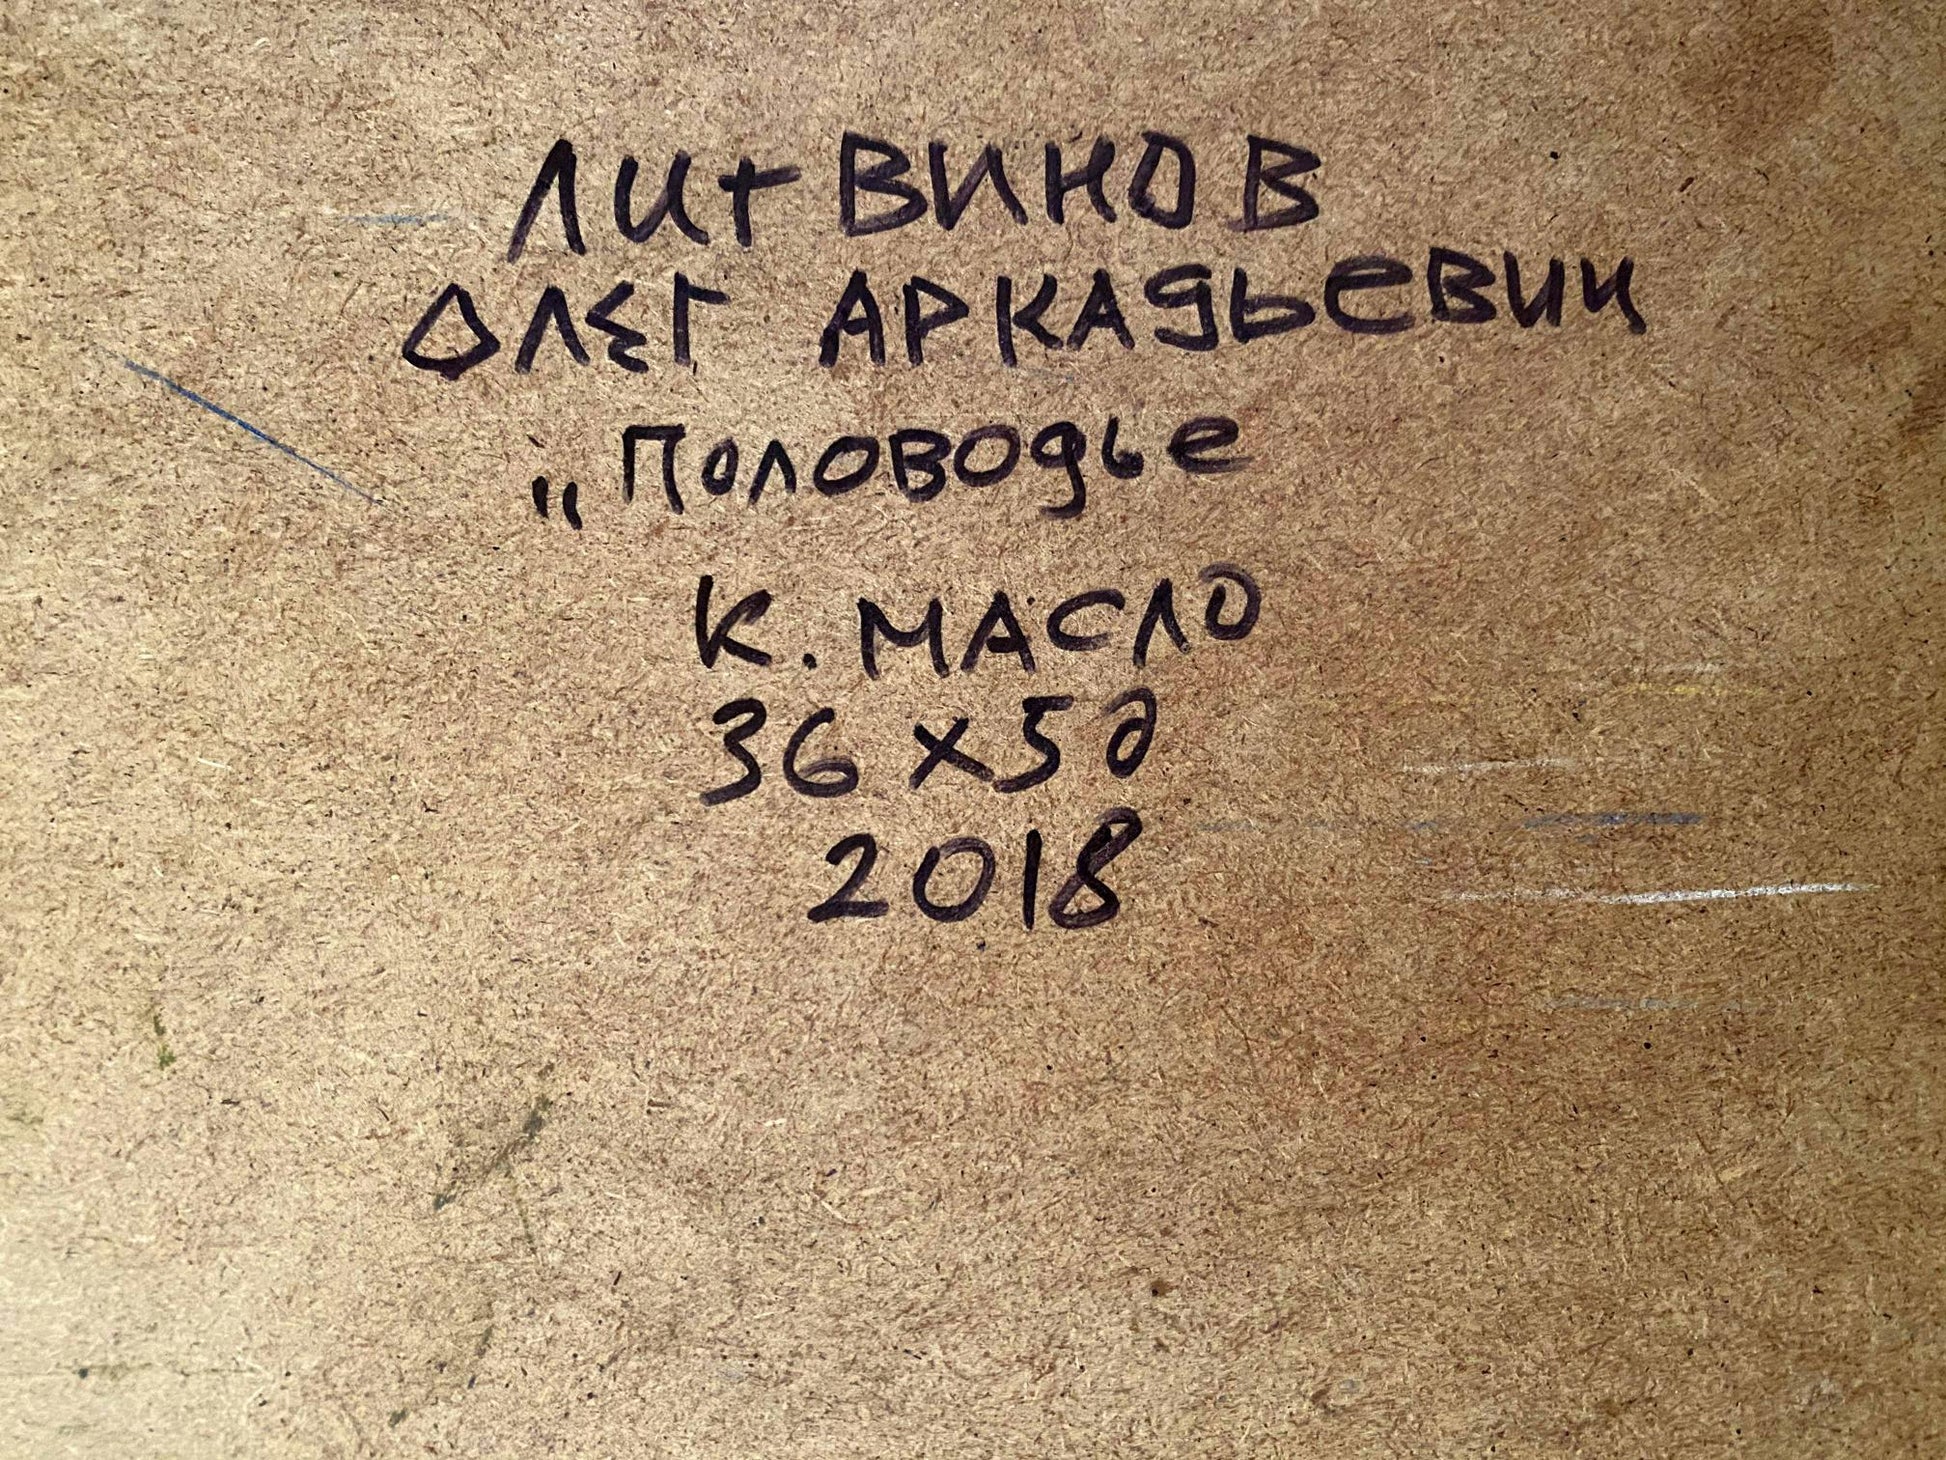 ЛИТВИНОВ
ОЛЕГ АРКАДЬЕВИЧ
„Половодье
К. МАСЛО
36x50
2018